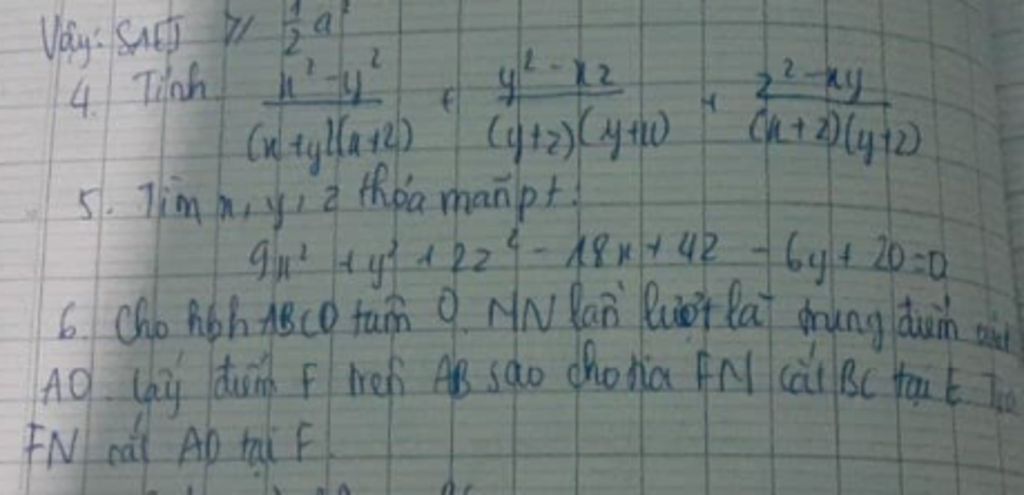 Vậy: SAEJ ≥ 1/2 a²
4. Tính (x² - y²)/((x+y)(x+z)) + (y² - xz)/((y+z)(y+x)) + (z² - xy)/((x+z)(y+z))
5. Tìm x, y, z thỏa mãn pt:
9x² + y² + 2z² - 18x + 4z - 6y + 20 = 0
6. Cho hbh ABCD tâm O. M N lần lượt là trung điểm
AO. Lấy điểm F trên AB sao cho tia FM cắt BC tại E.
FN cắt AD tại F